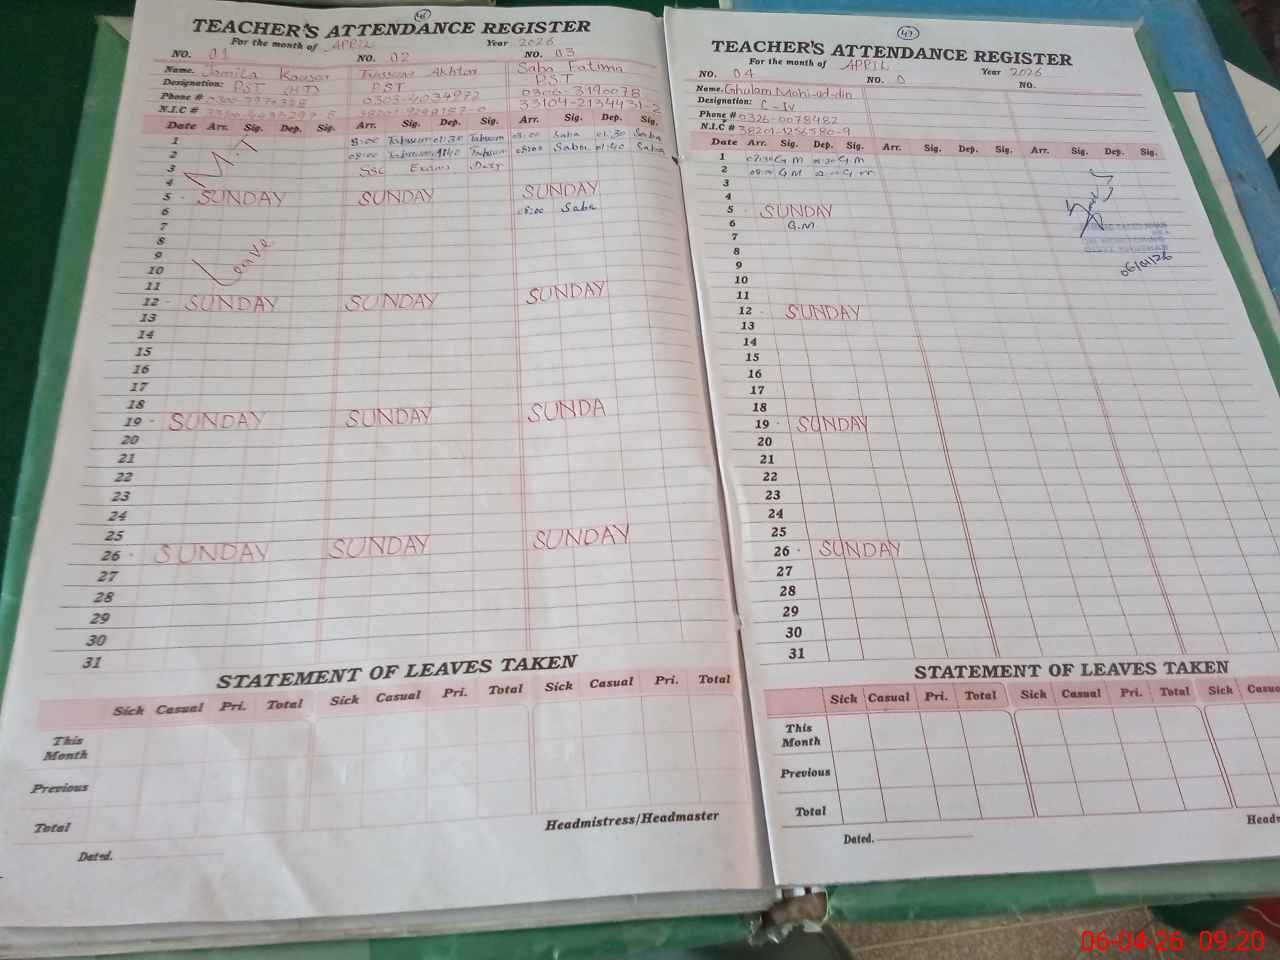 46
TEACHER'S ATTENDANCE REGISTER
For the month of APRIL Year 2026
NO. 01 NO. 02 NO. 03
Name. Jamila Kousar Tabassum Akhtar Saba Fatima
Designation: PST (HT) PST PST
Phone # 0303-4034972 0306-3190078
N.I.C # 33104-2134431-2
Date Arr. Sig. Dep. Sig. Arr. Sig. Dep. Sig. Arr. Sig. Dep. Sig.
1 8:00 Tabassum 01:30 Tabassum 08:00 Saba 01:30 Saba
2 08:00 Tabassum Tabassum 08:00 Saba 01:40 Saba
3 SSC Exams Duty
4
5 SUNDAY SUNDAY SUNDAY
6 08:00 Saba
7
8
9 Leave
10
11
12 SUNDAY SUNDAY SUNDAY
13
14
15
16
17
18
19 SUNDAY SUNDAY SUNDA
20
21
22
23
24
25
26 SUNDAY SUNDAY SUNDAY
27
28
29
30
31
STATEMENT OF LEAVES TAKEN
Sick Casual Pri. Total Sick Casual Pri. Total Sick Casual Pri. Total
This Month
Previous
Total
Headmistress/Headmaster
Dated.
47
TEACHER'S ATTENDANCE REGISTER
For the month of APRIL Year 2026
NO. 04 NO. 0 NO.
Name. Ghulam Mohi-ud-din
Designation: C-IV
Phone # 0326-0078482
N.I.C # 38201-1256580-9
Date Arr. Sig. Dep. Sig. Arr. Sig. Dep. Sig. Arr. Sig. Dep. Sig.
1 07:30 G.M G.M
2 G.M G.M
3
4
5 SUNDAY
6 G.M
7
8
9 06/04/26
10
11
12 SUNDAY
13
14
15
16
17
18
19 SUNDAY
20
21
22
23
24
25
26 SUNDAY
27
28
29
30
31
STATEMENT OF LEAVES TAKEN
Sick Casual Pri. Total Sick Casual Pri. Total Sick
This Month
Previous
Total
Dated.
06-04-26 09:20